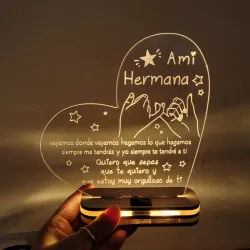 Ami
Hermana
vayamos donde vayamos hagamos lo que hagamos
siempre me tendrás y yo siempre te tendré a ti
Quiero que sepas
que te quiero y
que estoy muy orgulloso de ti